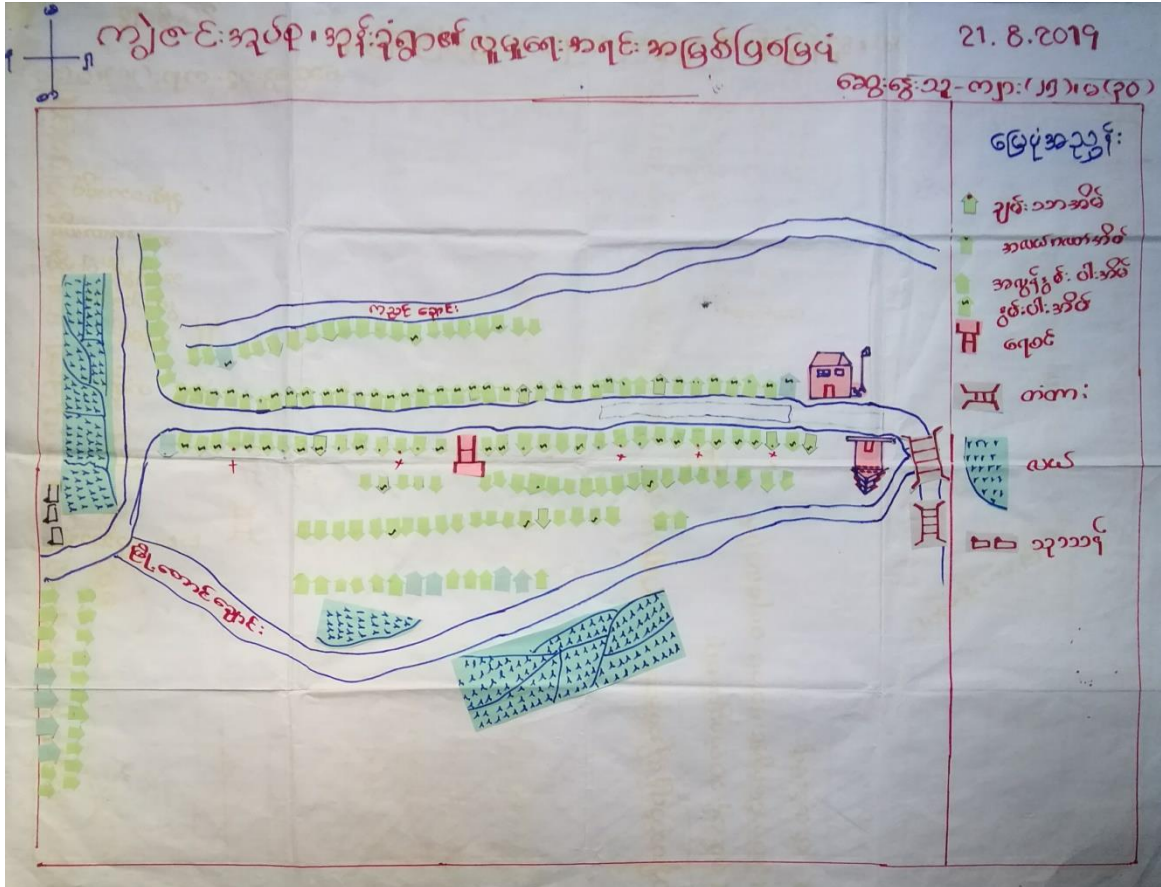 ကျွဲဇင်းအုပ်စု၊ အုန်းခုံရွာ၏ လူမှုရေးအရင်းအမြစ်ပြမြေပုံ
21.8.2019
ဆွေးနွေးသူ-ကျား(၂၅)၊မ(၃၀)
မြေပုံအညွှန်း
ချမ်းသာအိမ်
အလယ်လတ်အိမ်
အလွန်နွမ်းပါးအိမ်
နွမ်းပါးအိမ်
ရေစင်
တံတား
လယ်
သုဿာန်
ကညင်ချောင်း